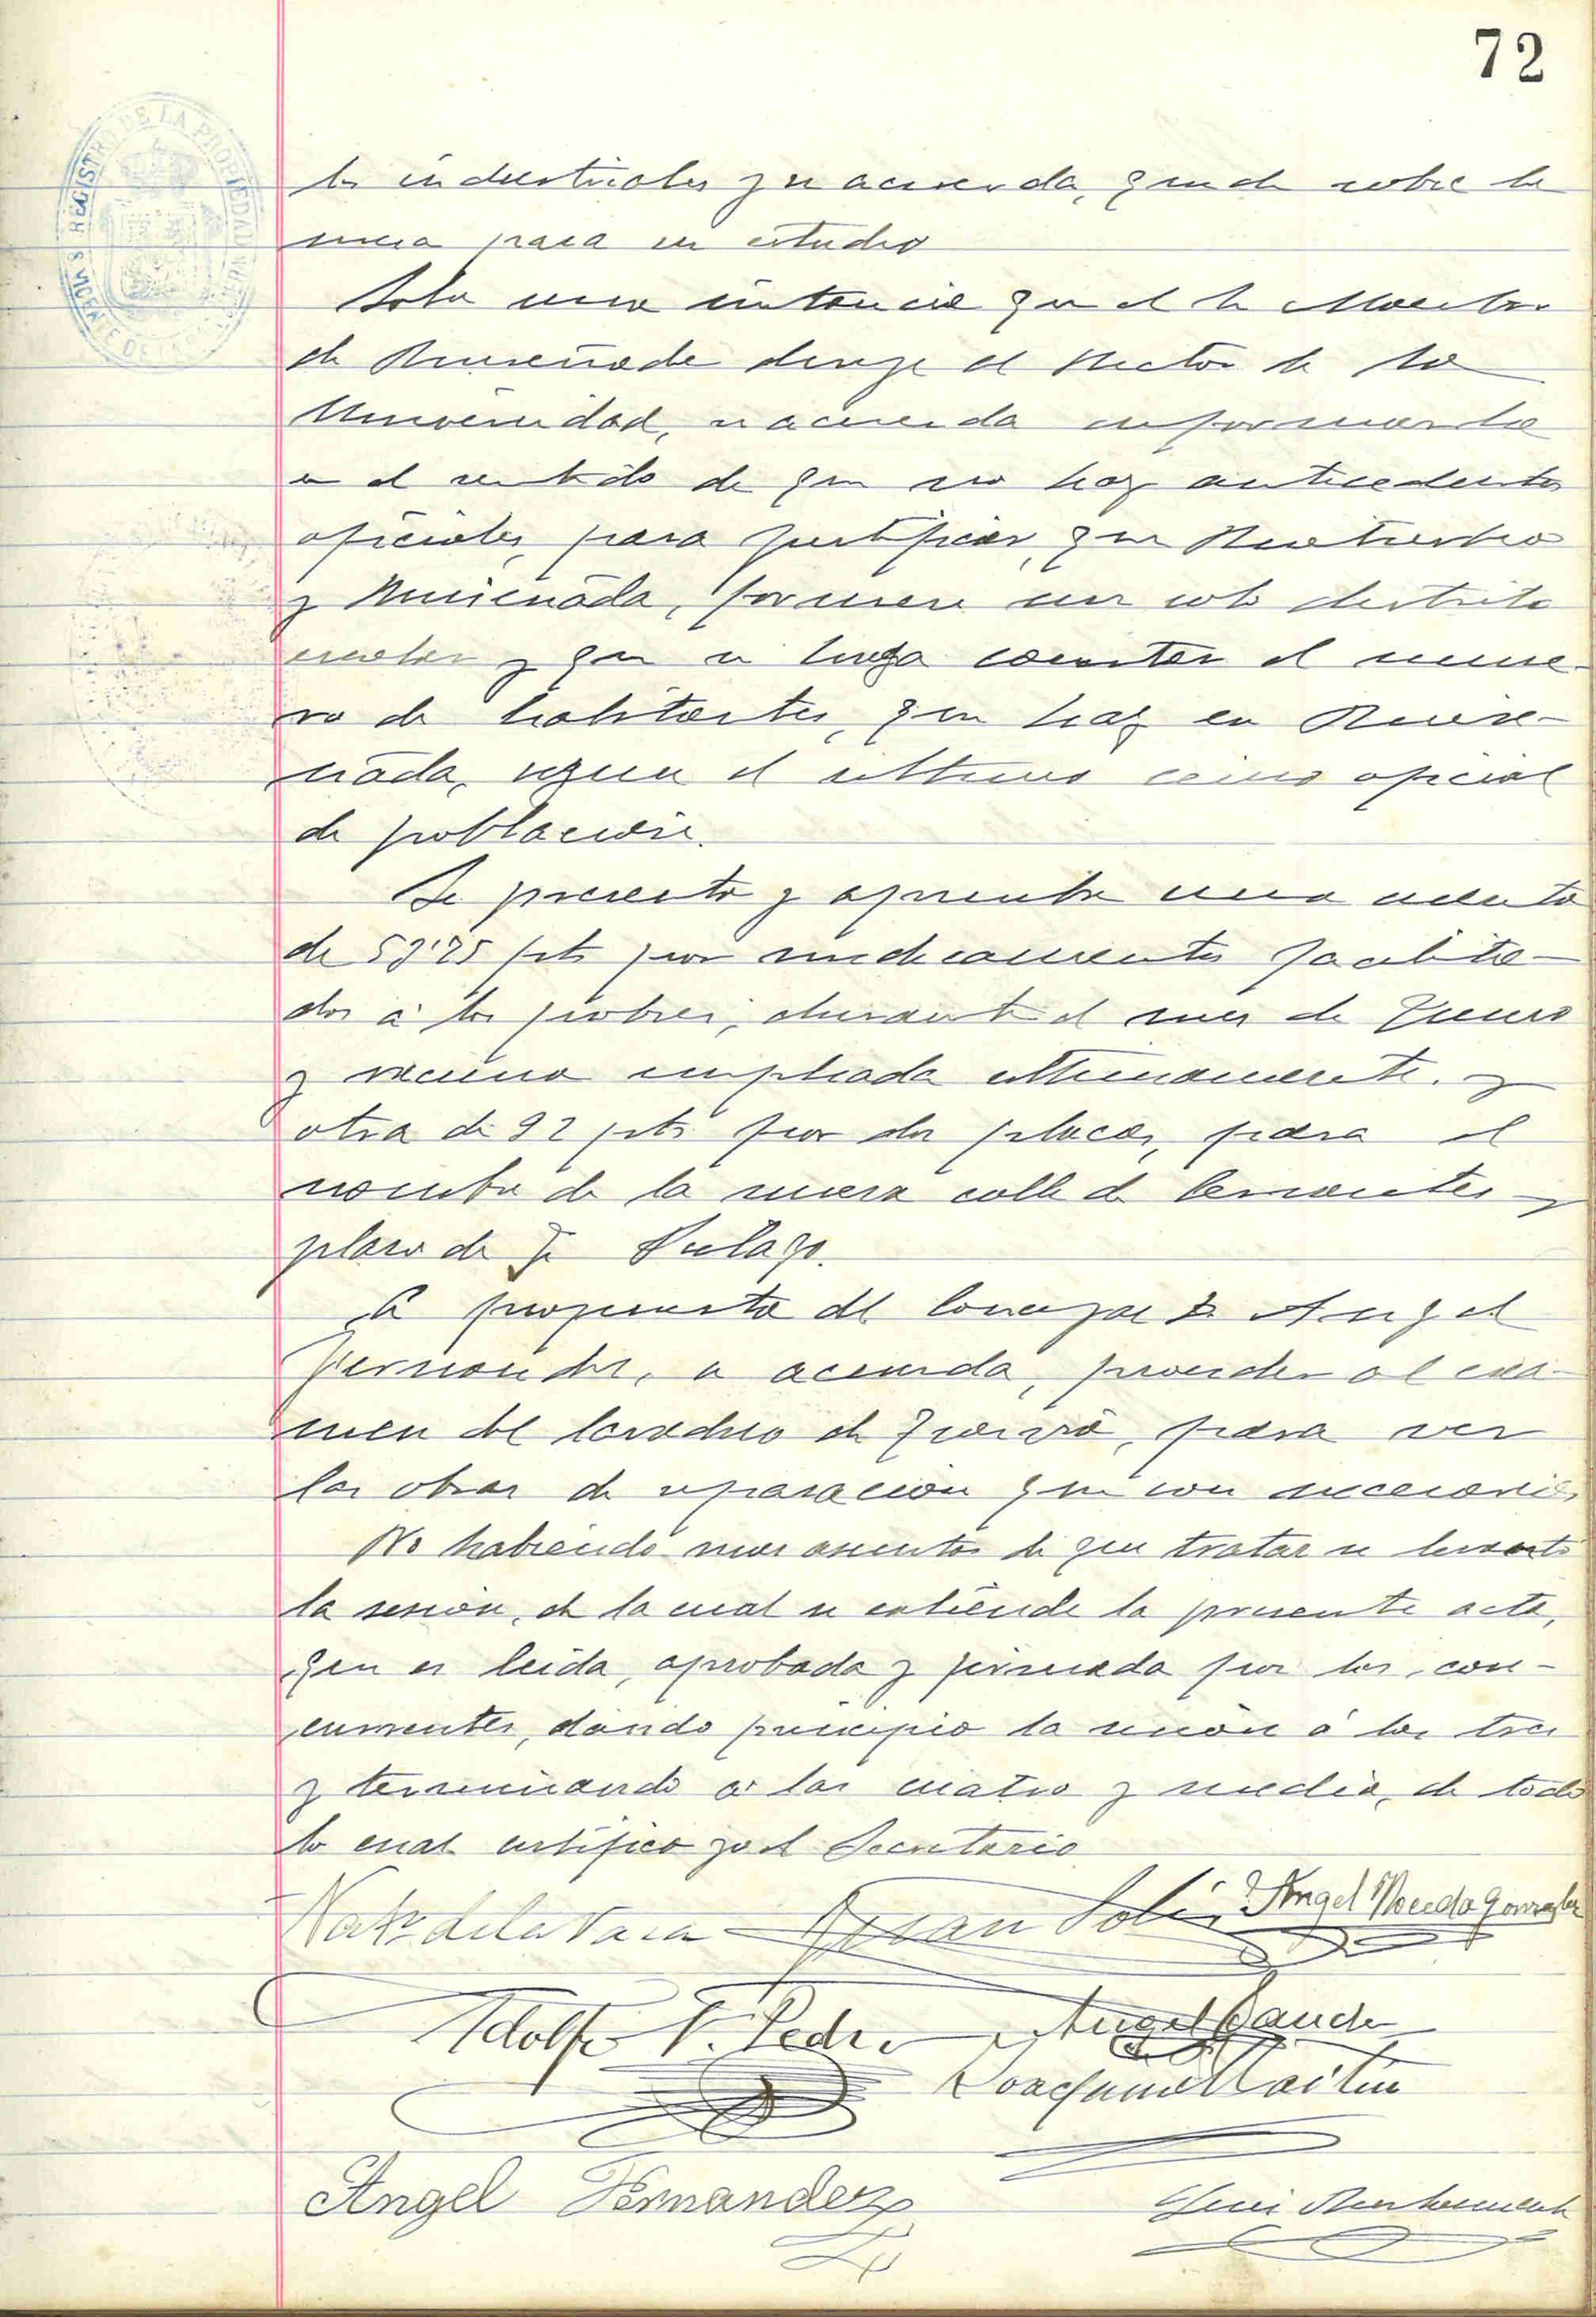 72
REGISTRO DE LA PROPIEDAD
los industriales y se acuerda, quede sobre la
mesa para su estudio
una instancia que el Sr Maestro
de dirije al Rector de la
Universidad, se acuerda informarla
en el sentido de que no hay antecedentes
oficiales, para justificar, que
y , formen un solo distrito
escolar y que se haga constar el nume-
ro de habitantes, que hay en
nada, segun el ultimo censo oficial
de poblacion.
Se presenta y aprueba una cuenta
de pts por medicamentos facilita-
dos á los pobres, durante el mes de Enero
y vacuna empleada ultimamente. y
otra de 92 pts por dos placas, para el
nombre de la nueva calle de Cervantes y
plaza de
A propuesta del Concejal D. Angel
Fernandez, se acuerda, proceder al exa-
men del lavadero de , para ver
las obras de reparacion que son necesarias
No habiendo mas asuntos de que tratar se levanta
la sesion, de la cual se extiende la presente acta,
que es leida, aprobada y firmada por los con-
currentes, dando principio la sesion á las tres
y terminando a las cuatro y media, de todo
lo cual certifico yo el Secretario
de la Vara Juan Solis Angel Gonzalez
Adolfo V. Pedro Angel Sanchez
Joaquin Martin
Angel Fernandez